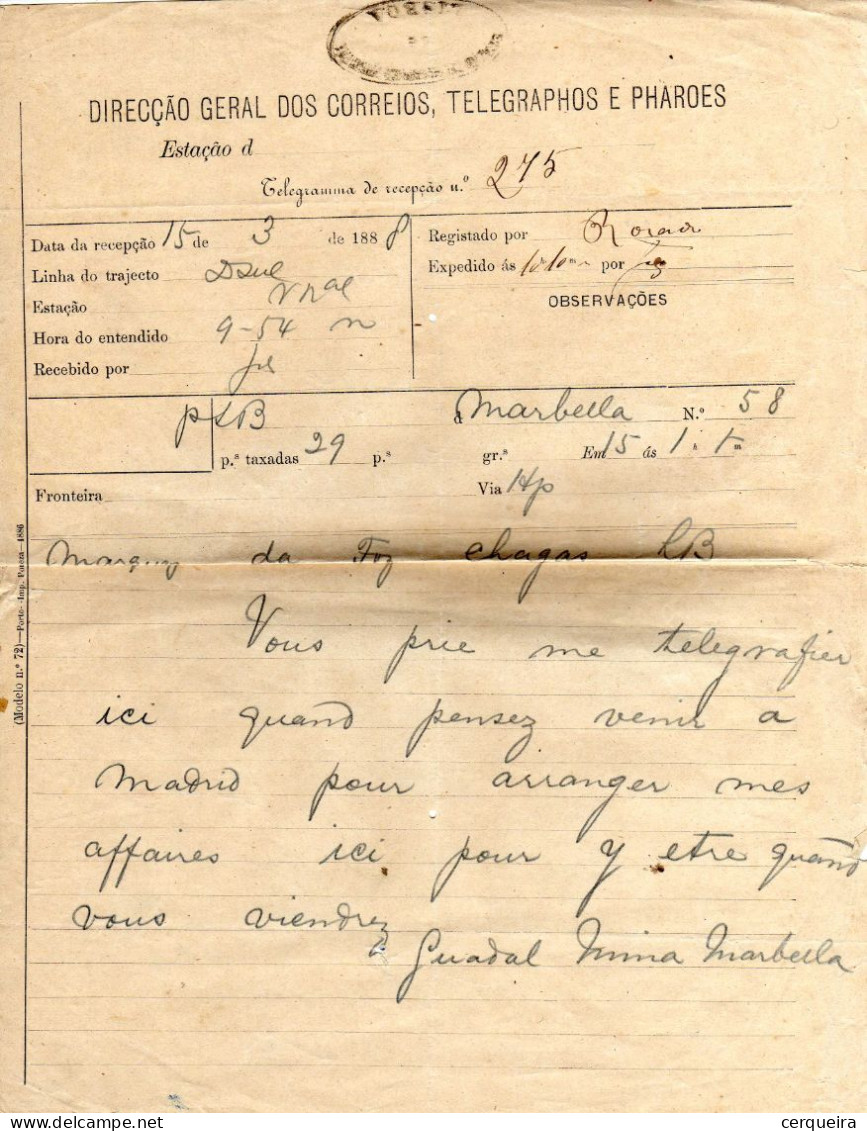 LISBOA
DIRECÇÃO GERAL DOS CORREIOS, TELEGRAPHOS E PHAROES
Estação d
Telegramma de recepção n.º 275
Data da recepção 15 de 3 de 1888
Linha do trajecto
Estação
Hora do entendido 9-54 m
Recebido por
Registado por
Expedido ás por
OBSERVAÇÕES
d Marbella N.º 58
p.ª taxadas 29 p.ª gr.ª Em 15 ás 1 h m
Fronteira Via
Marquez da Foz chagas LB
Vous prie me telegrafier
ici quand pensez venir a
Madrid pour arranger mes
affaires ici pour y etre quand
vous viendrez
Guadal Mina Marbella
(Modelo n.º 72)—Porto—Imp. Povoa—1886
cerqueira